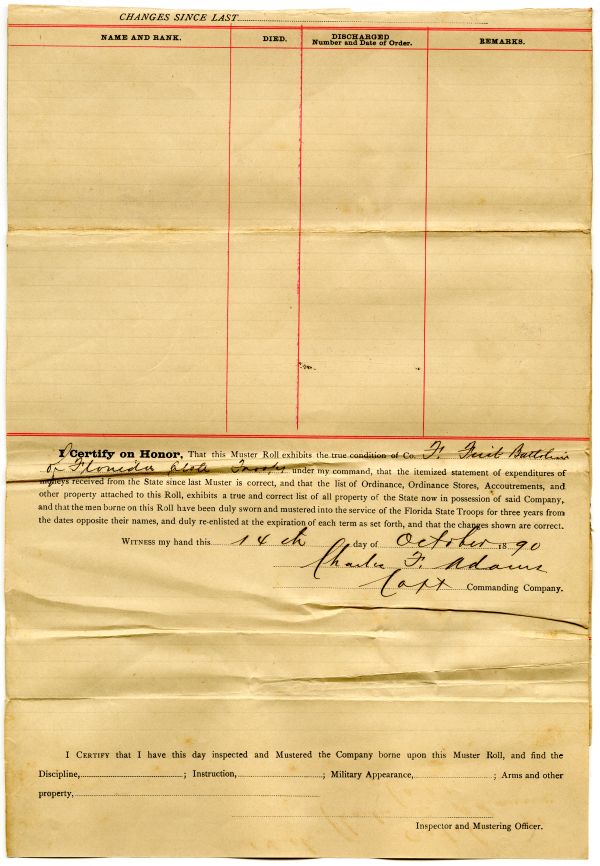 CHANGES SINCE LAST
NAME AND RANK. DIED. DISCHARGED Number and Date of Order. REMARKS.
I Certify on Honor, That this Muster Roll exhibits the true condition of Co. F. First Battalion
of Florida State Troops under my command, that the itemized statement of expenditures of
moneys received from the State since last Muster is correct, and that the list of Ordinance, Ordinance Stores, Accoutrements, and
other property attached to this Roll, exhibits a true and correct list of all property of the State now in possession of said Company,
and that the men borne on this Roll have been duly sworn and mustered into the service of the Florida State Troops for three years from
the dates opposite their names, and duly re-enlisted at the expiration of each term as set forth, and that the changes shown are correct.
WITNESS my hand this 14th day of October 1890
Charles F. Adams
Capt Commanding Company.
I CERTIFY that I have this day inspected and Mustered the Company borne upon this Muster Roll, and find the
Discipline, ; Instruction, ; Military Appearance, ; Arms and other
property,
Inspector and Mustering Officer.